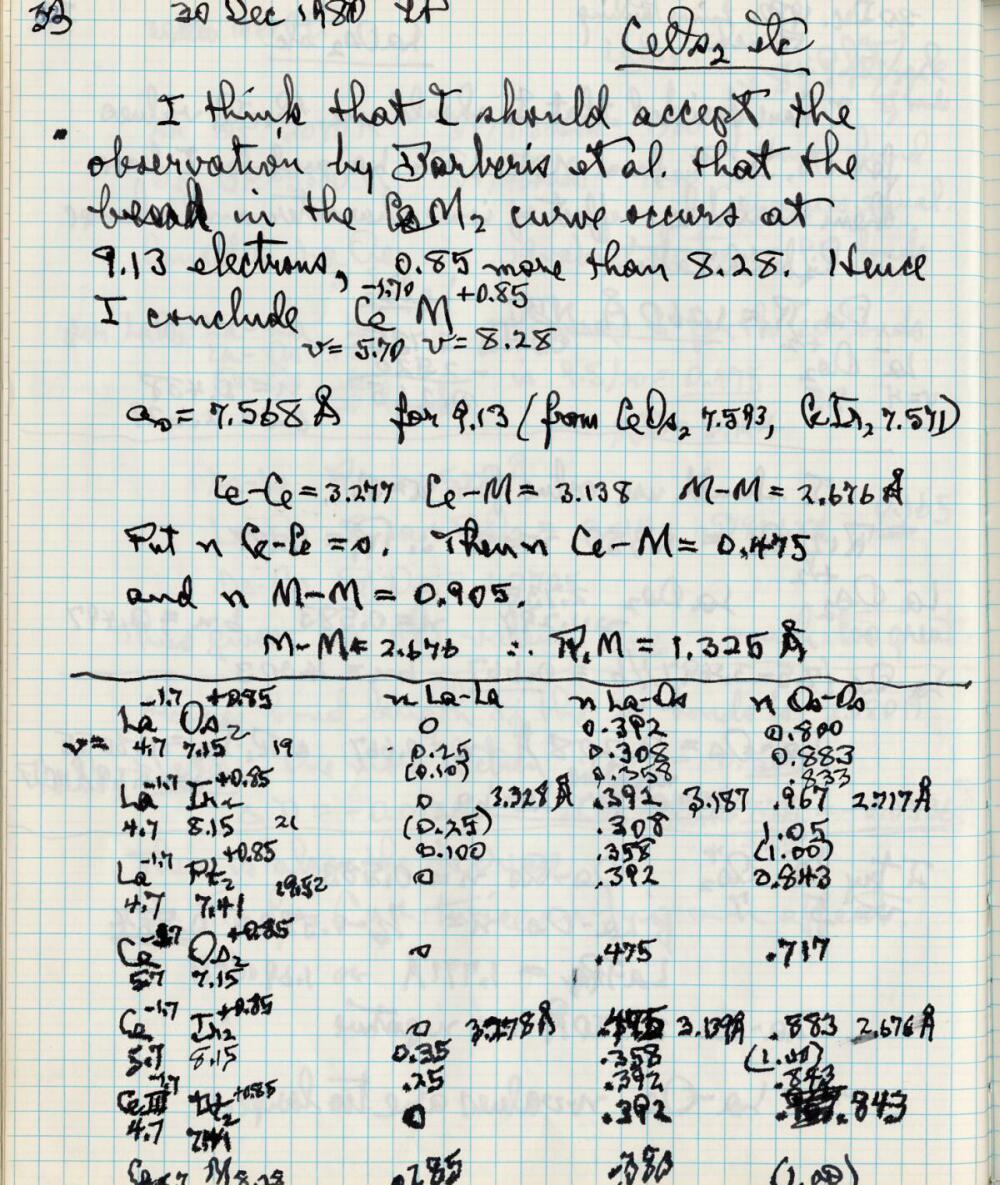 33 30 Dec 1980 LP
CeOs2 etc
I think that I should accept the
observation by Barberis et al. that the
bend in the CeM2 curve occurs at
9.13 electrons, 0.85 more than 8.28. Hence
I conclude Ce^-1.70 M^+0.85
v = 5.70 v = 8.28
a0 = 7.568 Å for 9.13 (from CeOs2 7.593, CeIr2 7.571)
Ce-Ce = 3.277 Ce-M = 3.138 M-M = 2.676 Å
Put n Ce-Ce = 0. Then n Ce-M = 0.475
and n M-M = 0.905.
M-M = 2.676 ∴ R1M = 1.325 Å
n La-La n La-Os n Os-Os
La^-1.7 Os2^+0.85 0 0.392 0.800
v = 4.7 7.15 19 0.25 0.308 0.883
(0.10) 0.358 .833
La^-1.7 Ir2^+0.85 0 3.328 Å .392 3.187 .967 2.717 Å
4.7 8.15 21 (0.25) .308 1.05
0.100 .358 (1.00)
La^-1.7 Pt2^+0.85 0 .392 0.843
4.7 7.41 19.52
Ce^-1.7 Os2^+0.85 0 .475 .717
5.7 7.15
Ce^-1.7 Ir2^+0.85 0 3.278 Å .475 3.139 Å .883 2.676 Å
5.7 8.15 0.35 .358 (1.00)
.25 .392
CeIII^-1.7 Pt2^+0.85 0 .392 .843
4.7 7.41
.285 .380 (1.00)